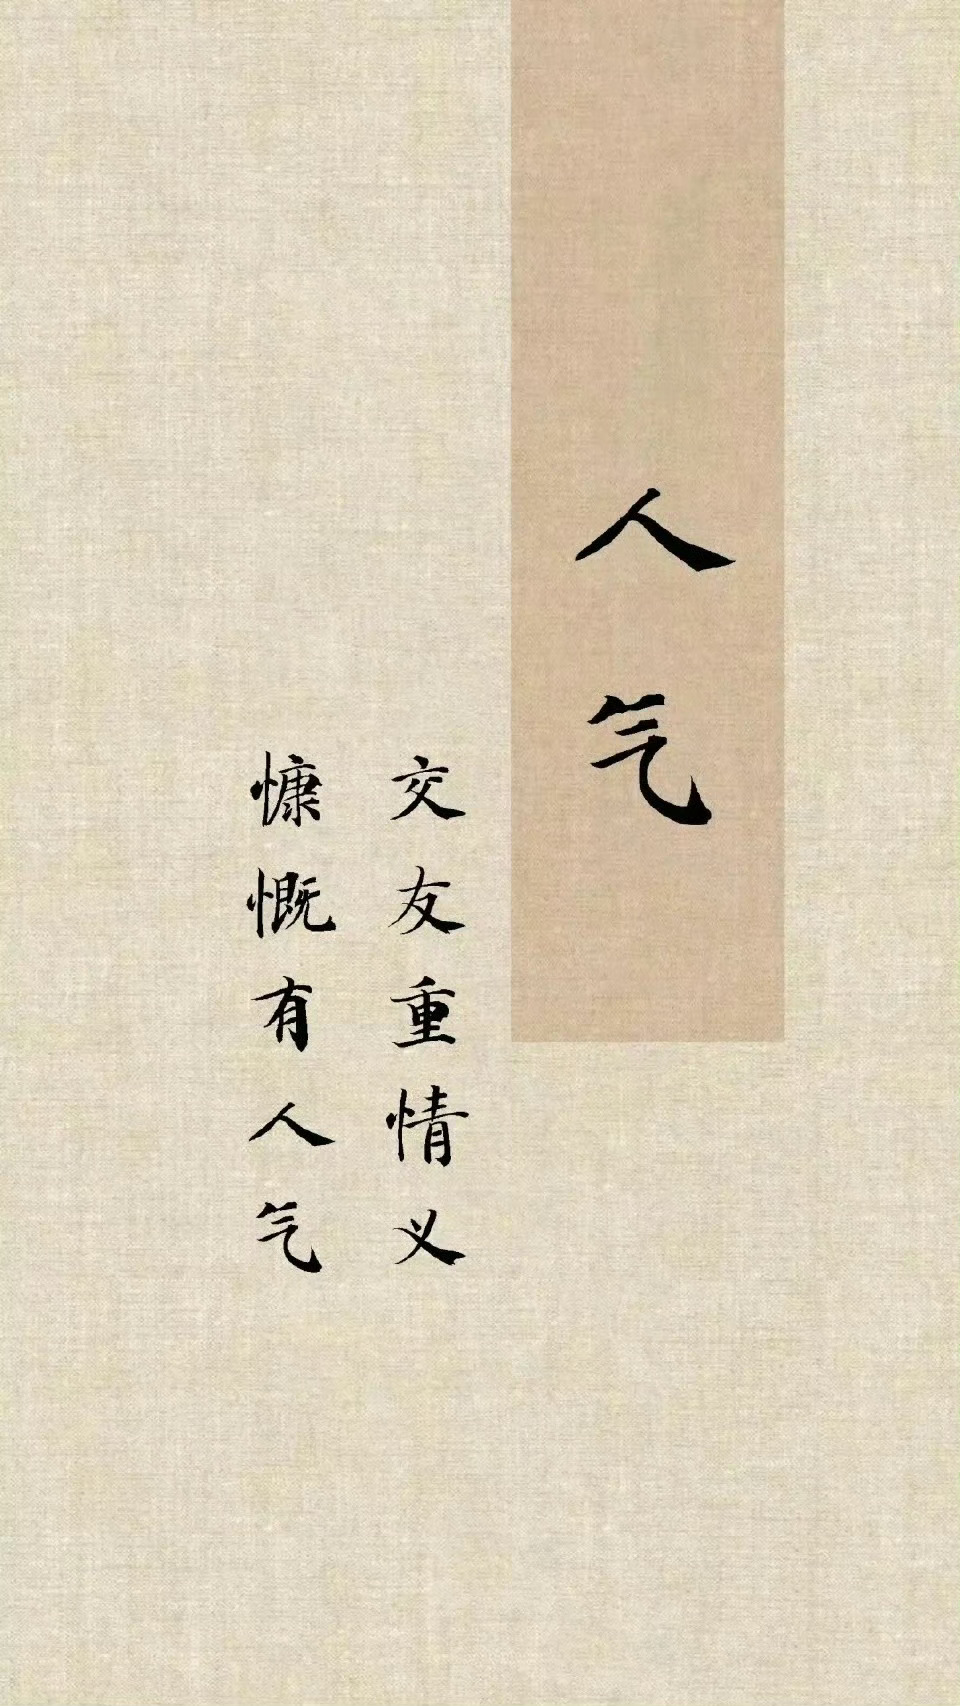 人气
交友重情义
慷慨有人气